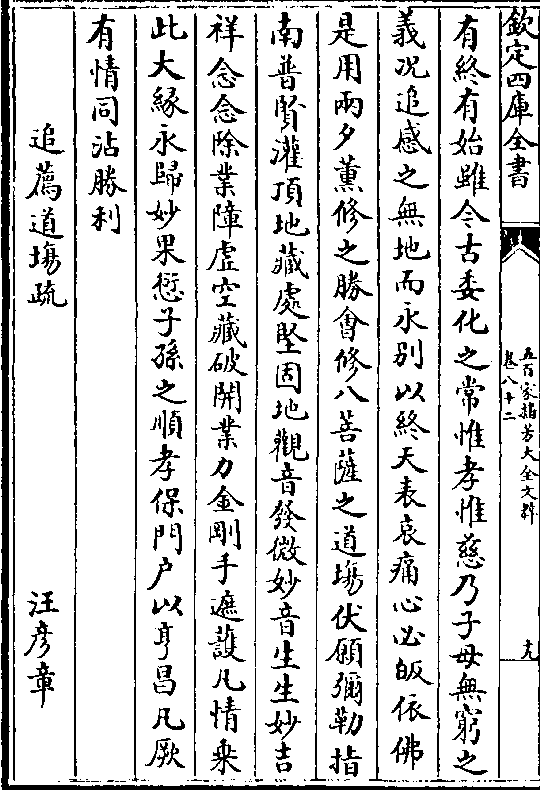 欽定四庫全書
五百家播芳大全文粹
卷八十二
九
有終有始雖今古委化之常惟孝惟慈乃子母無窮之
義况追感之無地而永别以終天表哀痛心必皈依佛
是用兩夕薰修之勝會修八菩薩之道塲伏願彌勒指
南普賢灌頂地藏處堅固地觀音發微妙音生生妙吉
祥念念除業障虚空藏破開業力金剛手遮護凡情乗
此大緣永歸妙果愆子孫之順孝保門户以亨昌凡厥
有情同沾勝利
追薦道塲疏
汪彦章